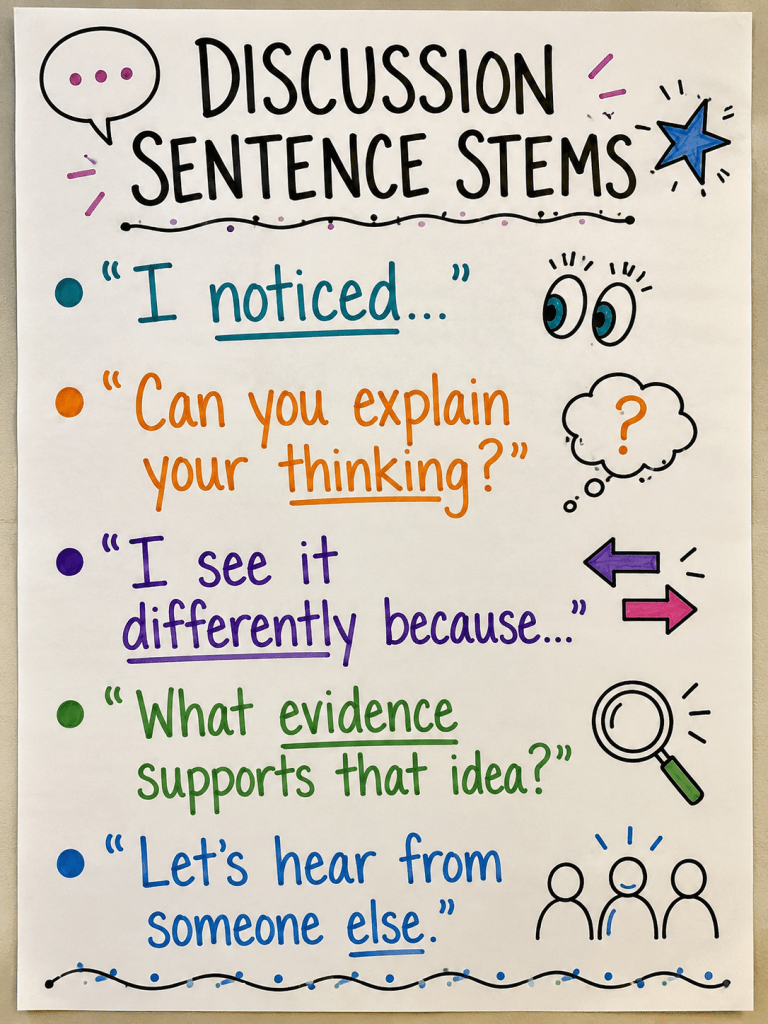 DISCUSSION
SENTENCE STEMS
• “I noticed...”
• “Can you explain
your thinking?”
• “I see it
differently because...”
• “What evidence
supports that idea?”
• “Let's hear from
someone else.”
?